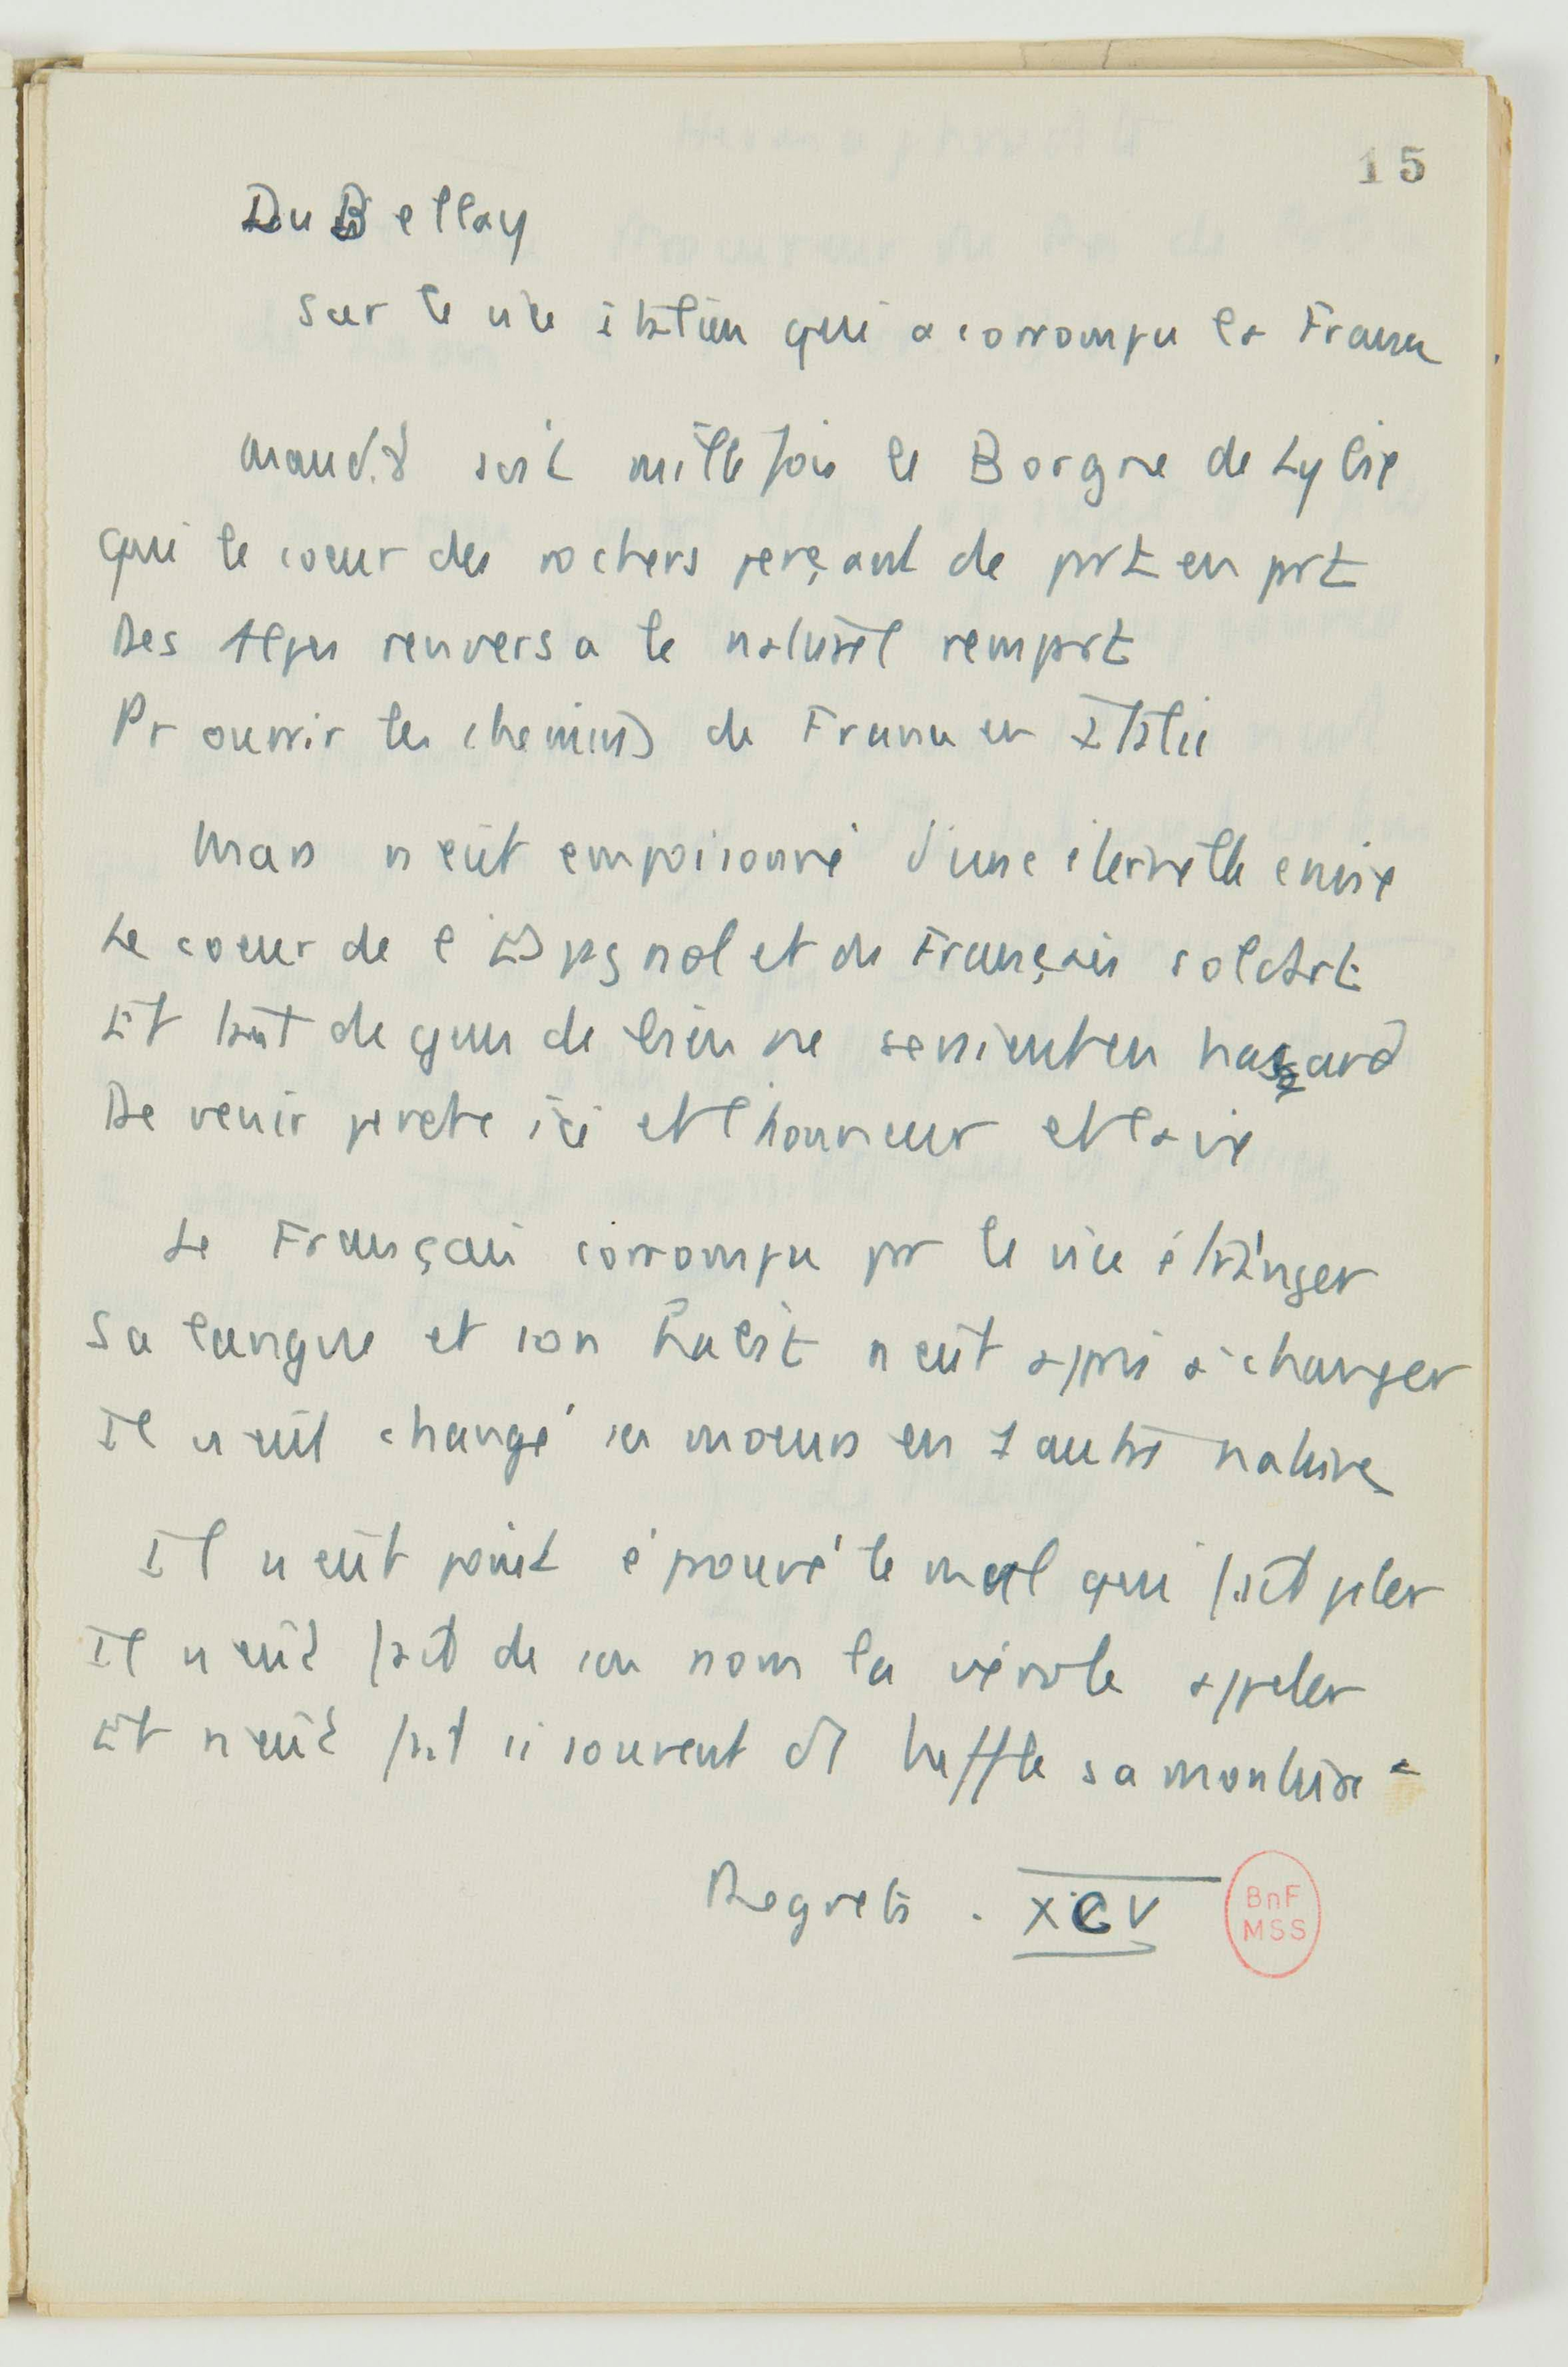 15
Du Bellay
Sur le vice italien qui a corrompu la France
Maudit soit mille fois le Borgne de Lybie
Qui le coeur des rochers perçant de part en part
Des Alpes renversa le naturel rempart
Pr ouvrir les chemins de France en Italie
Mars n'eût empoisonné d'une éternelle envie
Le coeur de l'Espagnol et du Français soldart
Et tant de gens de bien ne seraient en hasard
De venir perdre ici et l'honneur et la vie
Le Français corrompu par le vice étranger
Sa langue et son habit n'eût appris à changer
Il n'eût changé ses moeurs en 1 autre nature
Il n'eût point éprouvé le mal qui fait peler
Il n'eût fait de son nom la vérole appeler
Et n'eût fait si souvent d'1 buffle sa monture
Regrets. XCV
BnF
MSS